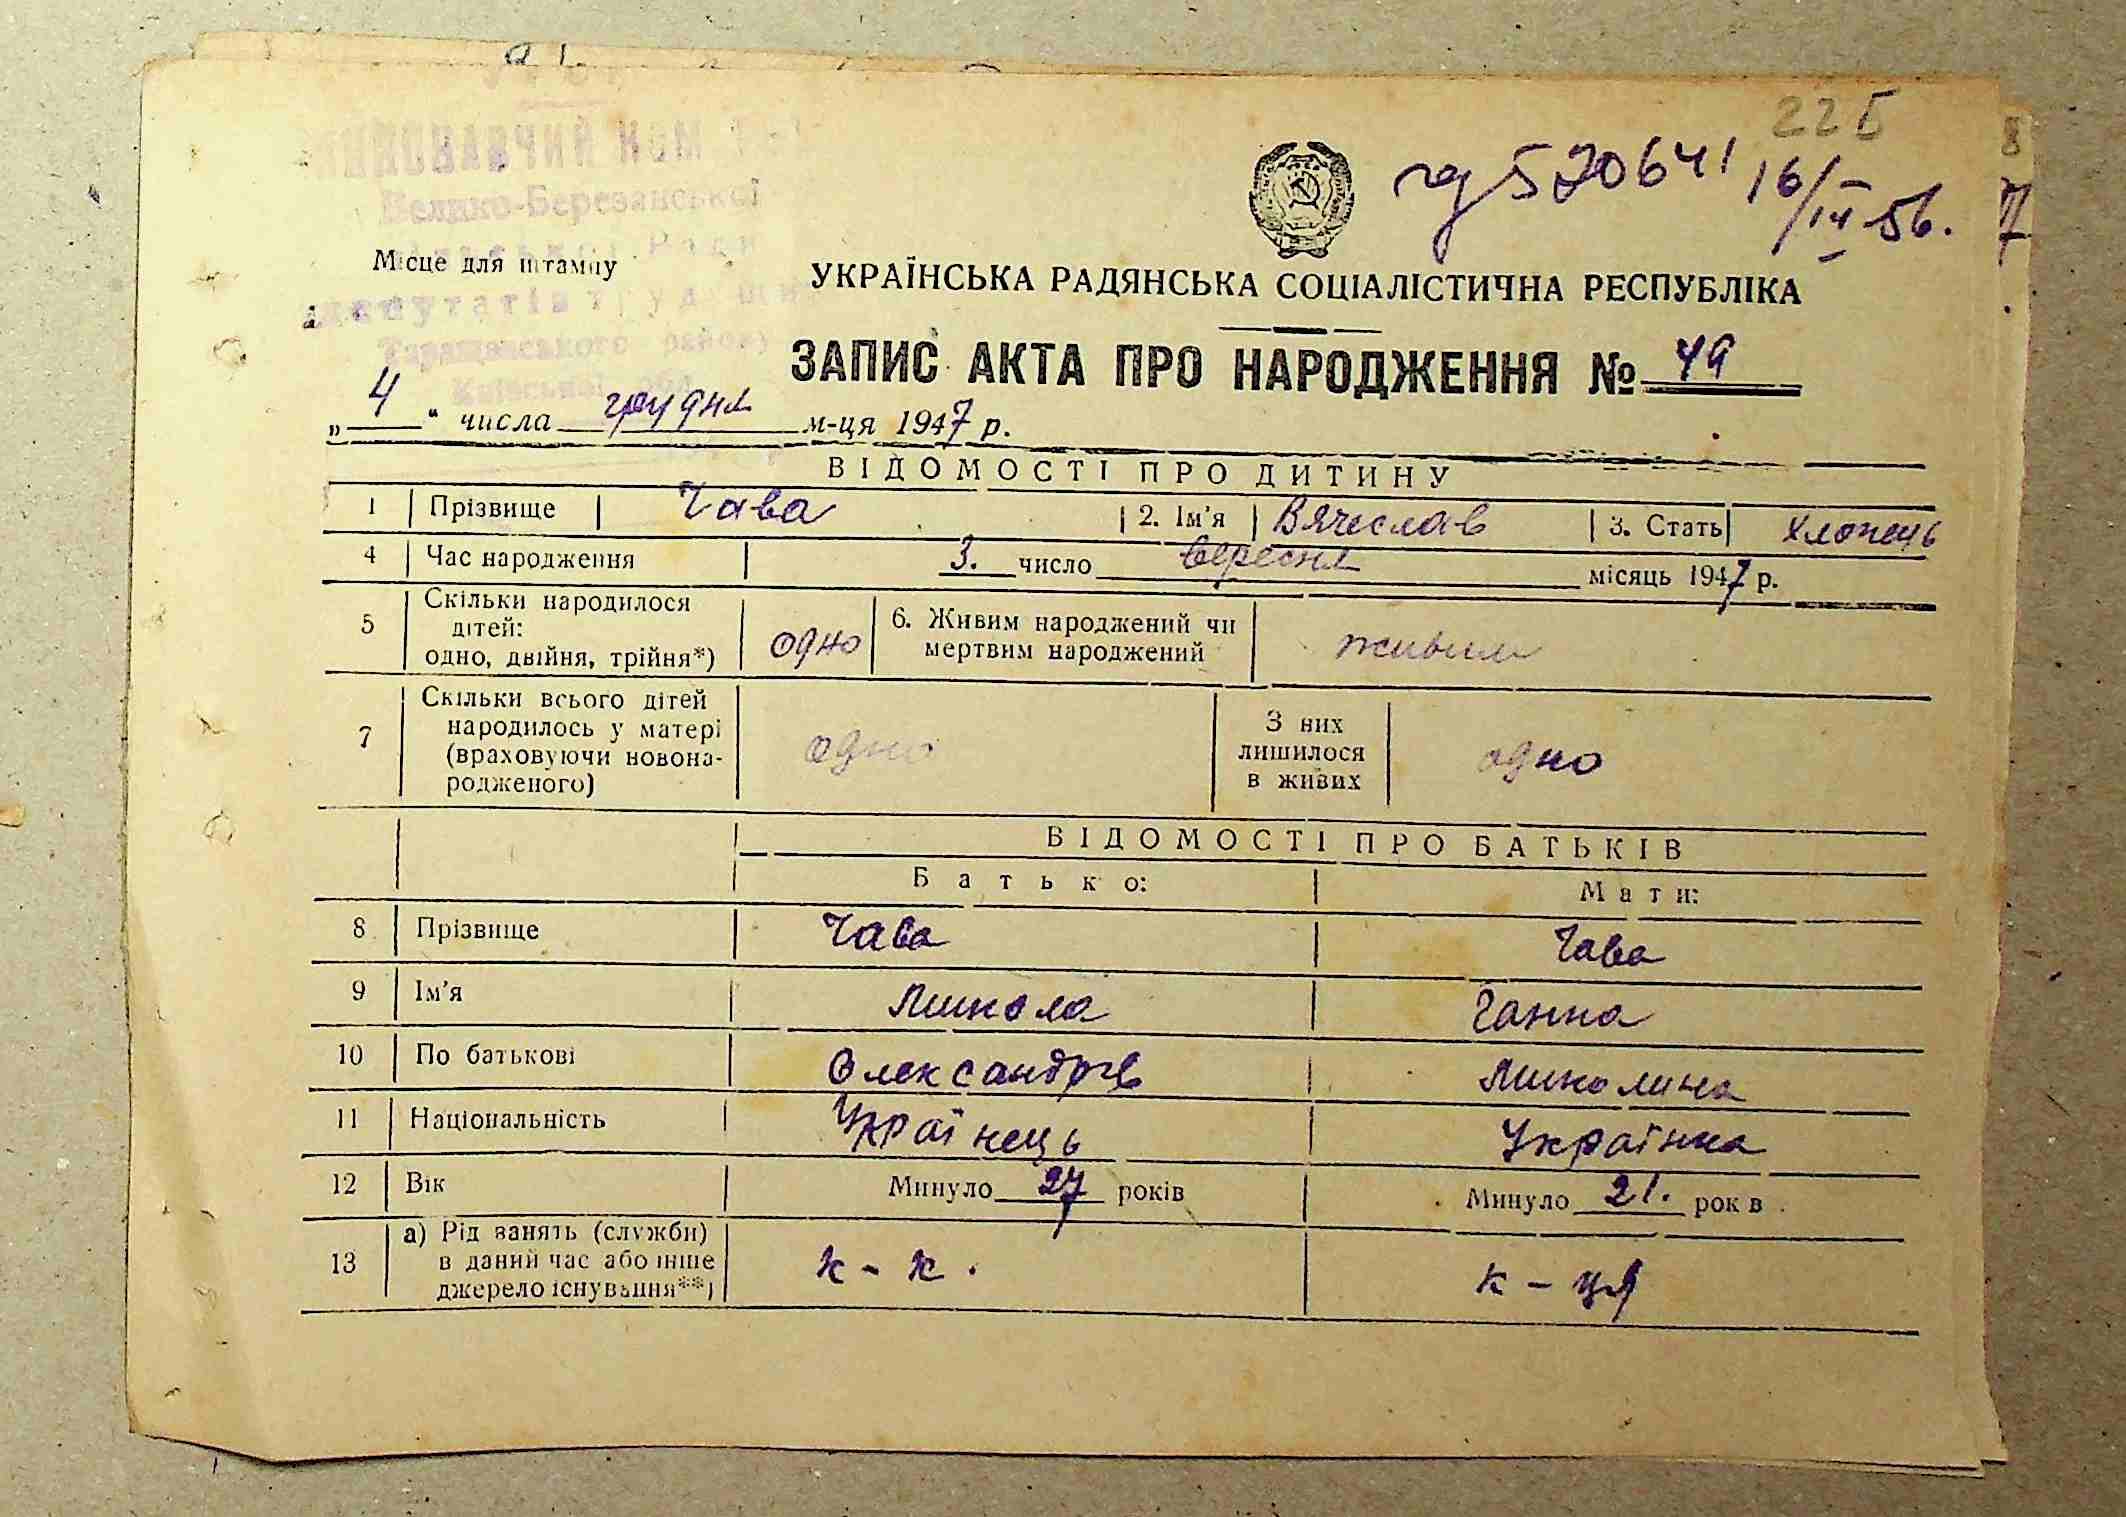 22Б
520641 16/III 56.
УРСР
ВИКОНАВЧИЙ КОМ
Велико-Березанської
сільської Ради
депутатів трудящих
Таращанського району
Київської обл.
Місце для штампу
УКРАЇНСЬКА РАДЯНСЬКА СОЦІАЛІСТИЧНА РЕСПУБЛІКА
ЗАПИС АКТА ПРО НАРОДЖЕННЯ № 49
„ 4 “ числа грудня м-ця 1947 р.
ВІДОМОСТІ ПРО ДИТИНУ
1 Прізвище Чава 2. Ім'я Вячеслав 3. Стать хлопець
4 Час народження 3. число вересня місяць 1947 р.
5 Скільки народилося дітей: одно, двійня, трійня*) одно 6. Живим народжений чи мертвим народжений живим
7 Скільки всього дітей народилось у матері (враховуючи новонародженого) одно З них лишилося в живих одно
ВІДОМОСТІ ПРО БАТЬКІВ
Батько: Мати:
8 Прізвище Чава Чава
9 Ім'я Микола Ганна
10 По батькові Олександрів Миколина
11 Національність Українець Українка
12 Вік Минуло 27 років Минуло 21. рок в
13 а) Рід занять (служби) в даний час або інше джерело існування**) к-к. к-ця